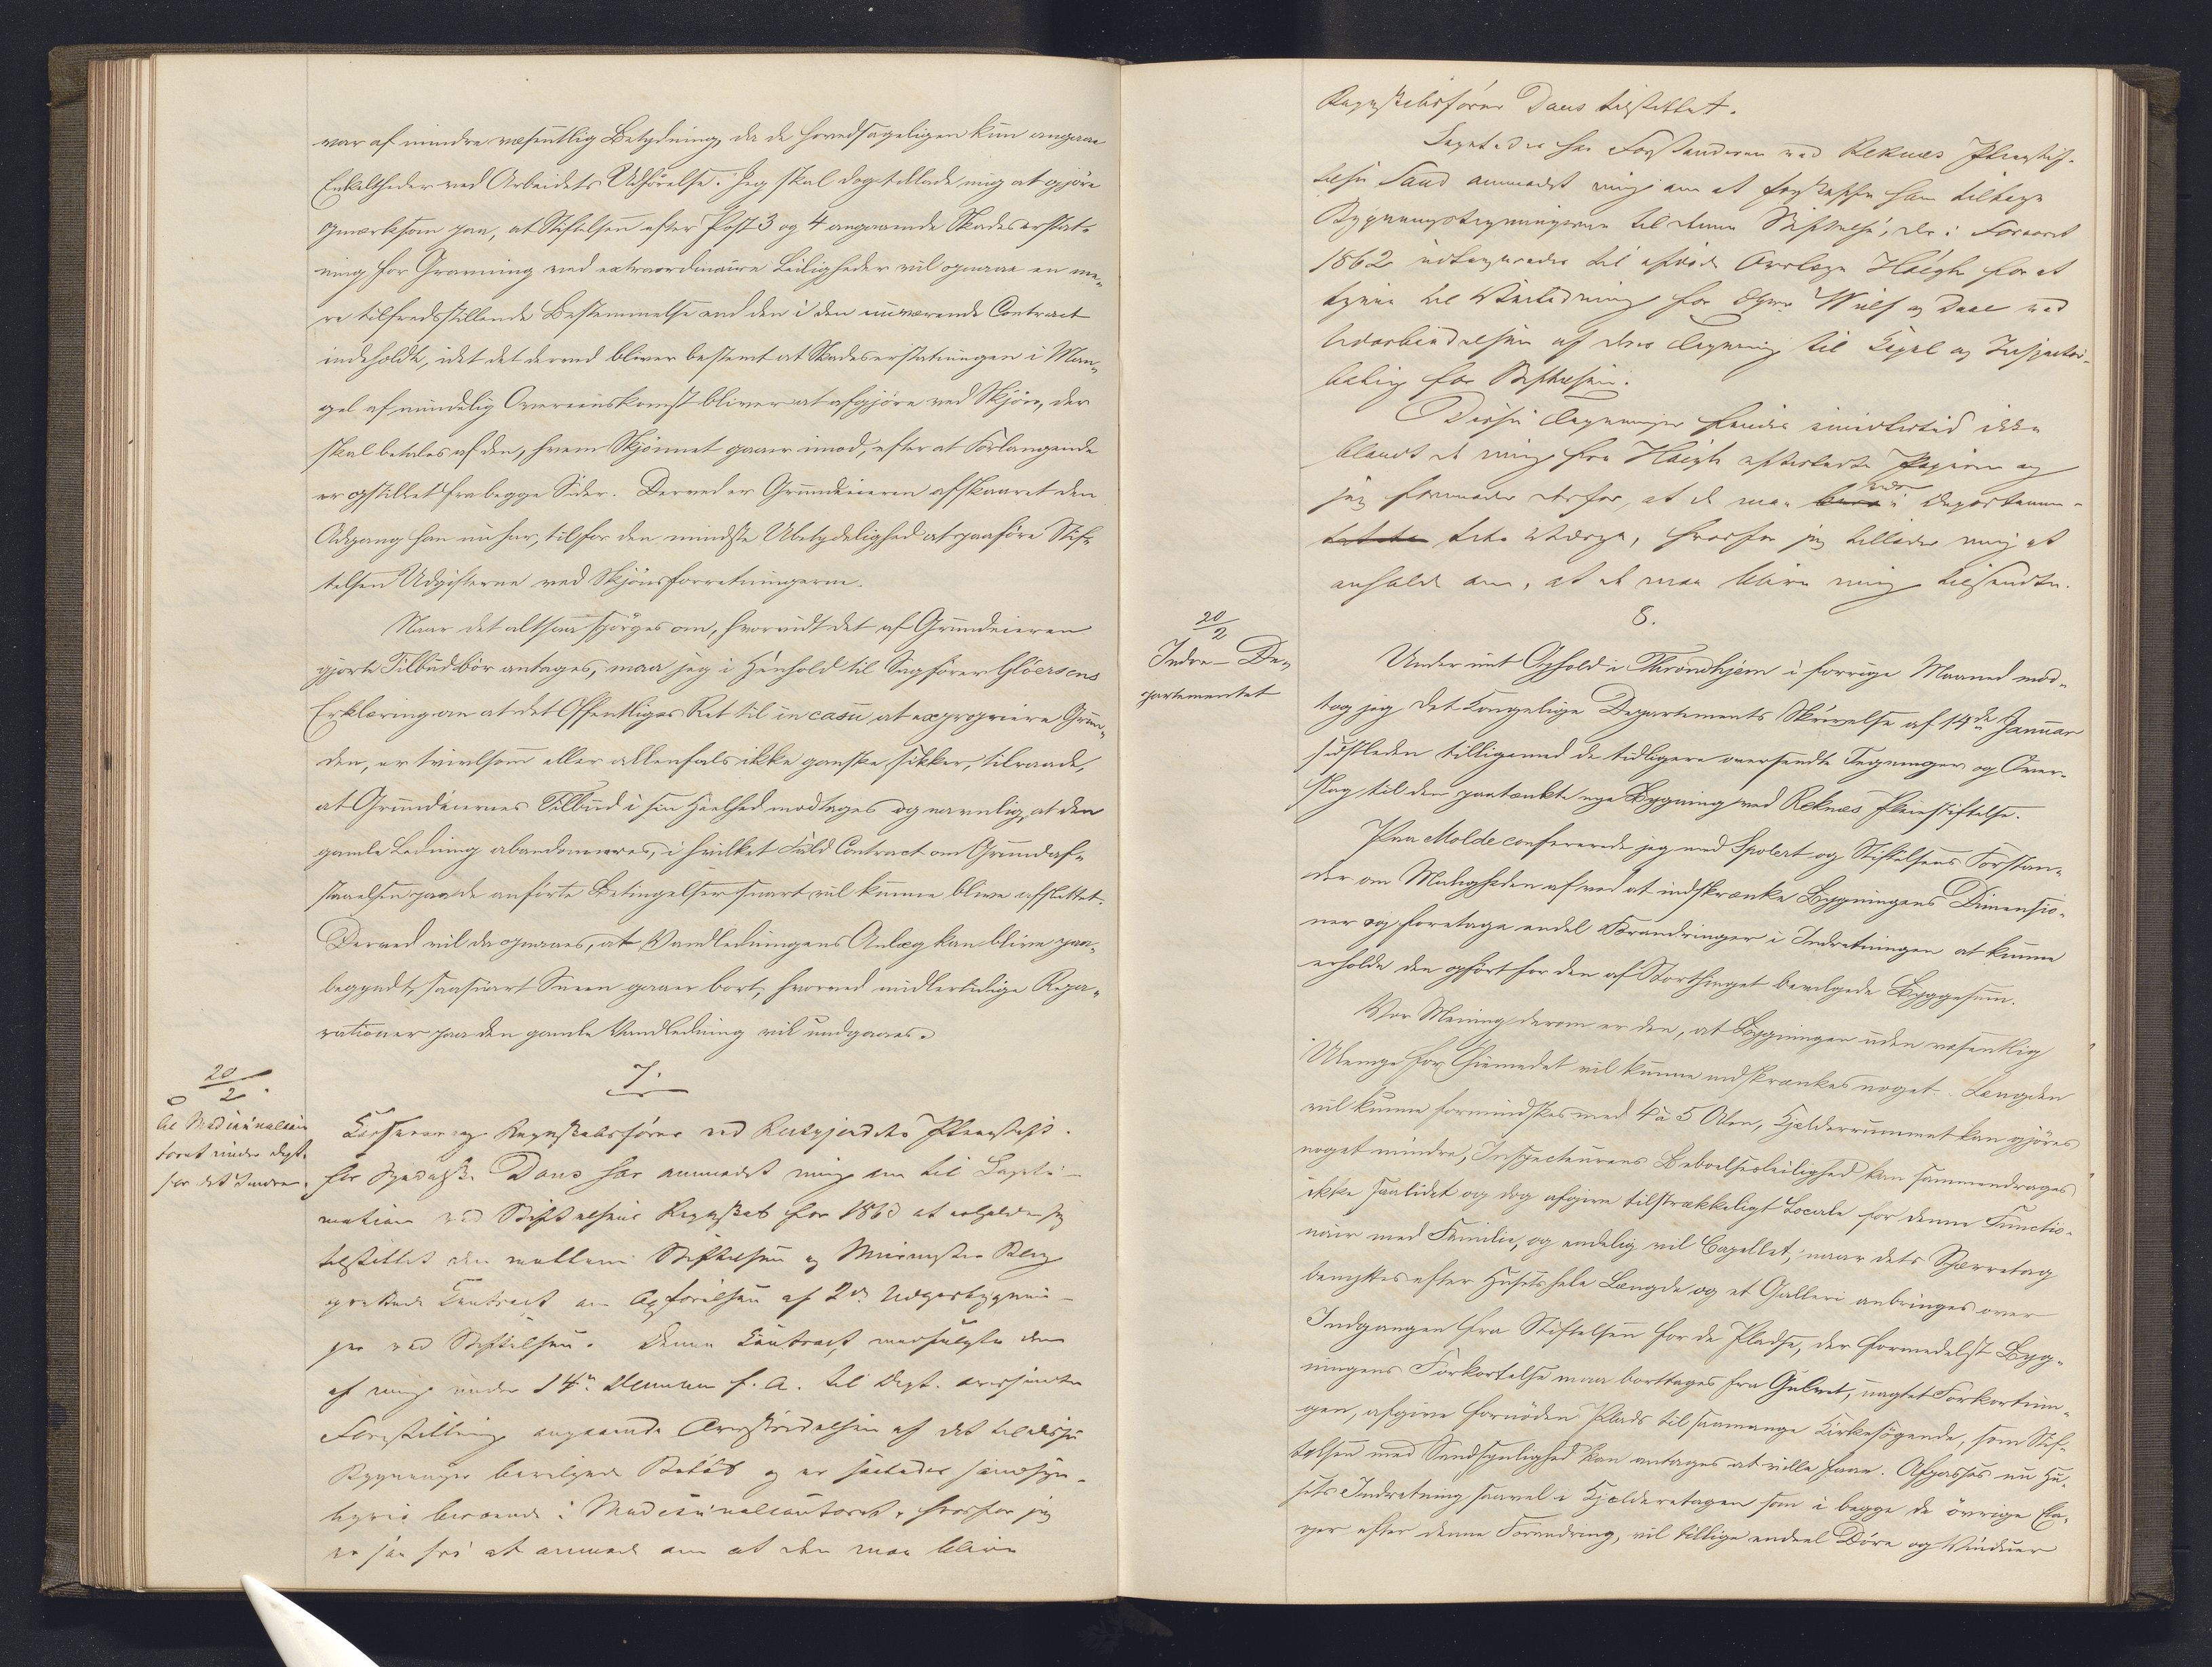 var af mindre væsentlig Betydning, da de hovedsageligen kun angaae
Enkeltheder ved Arbeidets Udførelse. Jeg skal dog tillade mig at gjøre
opmærksom paa, at Stiftelsen efter Post 3 og 4 angaaende Skadeserstat-
ning for Gravning ved extraordinaire Leiligheder vil opnaae en me-
re tilfredsstillende Bestemmelse end den i den nuværende Contract
indeholdte, idet det derved bliver bestemt at Skadeserstatningen i Man-
gel af mindelig Overeenskomst bliver at afgjøre ved Skjøn, der
skal betales af den, hvem Skjønnet gaaer imod, efter at Forlangende
er opstillet fra begge Sider. Derved er Grundeieren afskaaret den
Adgang han nu har, til for den mindste Ubetydelighed at paaføre Stif-
telsen Udgifterne ved Skjønsforretningerne.
Naar det altsaa spørges om, hvorvidt det af Grundeieren
gjorte Tilbud bør antages, maa jeg i Henhold til Sagfører Gløersens
Erklæring om at det Offentliges Ret til in casu at expropriere Grun-
den, er tvivlsom eller allenfals ikke ganske sikker, tilraade,
at Grundeiernes Tilbud i sin Heelhed modtages og navnlig, at den
gamle Ledning abandonneres, i hvilket Fald Contract om Grundaf-
staaelsen paa de anførte Betingelser snart vil kunne blive afsluttet.
Derved vil da opnaaes, at Vandledningens Anlæg kan blive paa-
begyndt, saasnart Sneen gaaer bort, hvorved midlertidige Repa-
rationer paa den gamle Vandledning vil undgaaes.
20/2.
til Medicinalcon
toret under Dept.
for det Indre.
7.
Kasserer og Regnskabsfører ved Reitgjerdets Pleiestift.
for Spedalske Dons har anmodet mig om til Legiti-
mation ved Stiftelsens Regnskab for 1863 at erholde sig
tilstillet den mellem Stiftelsen og Muurmester Berg
oprettede Contract om Opførelsen af 2de Udhusbygnin-
ger ved Stiftelsen. Denne Contract medfulgte den
af mig under 14de f. A. til Dept. oversendte
Forestilling angaaende Overskridelsen af det til disse
Bygninger bevilgede Beløb og er saaledes sandsyn-
ligvis beroende i Medicinalcontoret, hvorfor jeg
er saa fri at anmode om at den maa blive
Regnskabsfører Dons tilstillet.
Ligeledes har Forstanderen ved Reknes Pleiestif-
telse Sand anmodet mig om at forskaffe ham tilbage
Bygningstegningerne til denne Stiftelse, der i Foraaret
1862 udlaantes til afdøde Overlæge Høegh for at
tjene til Veiledning for Wulf og Daae ved
Udarbeidelsen af deres Tegning til Kapel og Inspecteur-
bolig for Stiftelsen.
Disse Tegninger findes imidlertid ikke
blandt de mig fra Høegh efterladte Papirer og
jeg formoder derfor, at de maa bero i Departemen-
tets Værge, hvorfor jeg tillader mig at
anholde om, at de maa blive mig tilsendte.
20/2
Indre-De-
partementet
8.
Under mit Ophold i Throndhjem i forrige Maaned mod-
tog jeg det Kongelige Departements Skrivelse af 14de Januar
sidstleden tilligemed de tidligere oversendte Tegninger og Over-
slag til den paatænkte nye Bygning ved Reknes Pleiestiftelse.
Paa Molde confererede jeg med Spolert og Stiftelsens Forstan-
der om Muligheden af ved at indskrænke Bygningens Dimensio-
ner og foretage endel Forandringer i Indretningen at kunne
erholde den opført for den af Storthinget bevilgede Byggesum.
Vor Mening derom er den, at Bygningen uden væsentlig
Ulempe for Øiemedet vil kunne indskrænkes noget. Længden
vil kunne formindskes med 4 à 5 Alen, Kjælderrummet kan gjøres
noget mindre, Inspecteurens Beboelsesleilighed kan sammendrages
ikke saalidet og dog afgive tilstrækkeligt Locale for denne Functio-
nair med Familie, og endelig vil Capellet, naar dets Sperretag
benyttes efter Husets hele Længde og et Galleri anbringes over
Indgangen fra Stiftelsen for de Pladse, der formedelst Byg-
ningens Forkortelse maa borttages fra Gulvet, uagtet Forkortnin-
gen, afgive fornøden Plads til saamange Kirkesøgende, som Stif-
telsen med Sandsynlighed kan antages at ville faae. Afpasses nu Hu-
sets Indretning saavel i Kjælderetagen som i begge de øvrige Eta-
ger efter denne Forandring, vil tillige endeel Døre og Vinduer